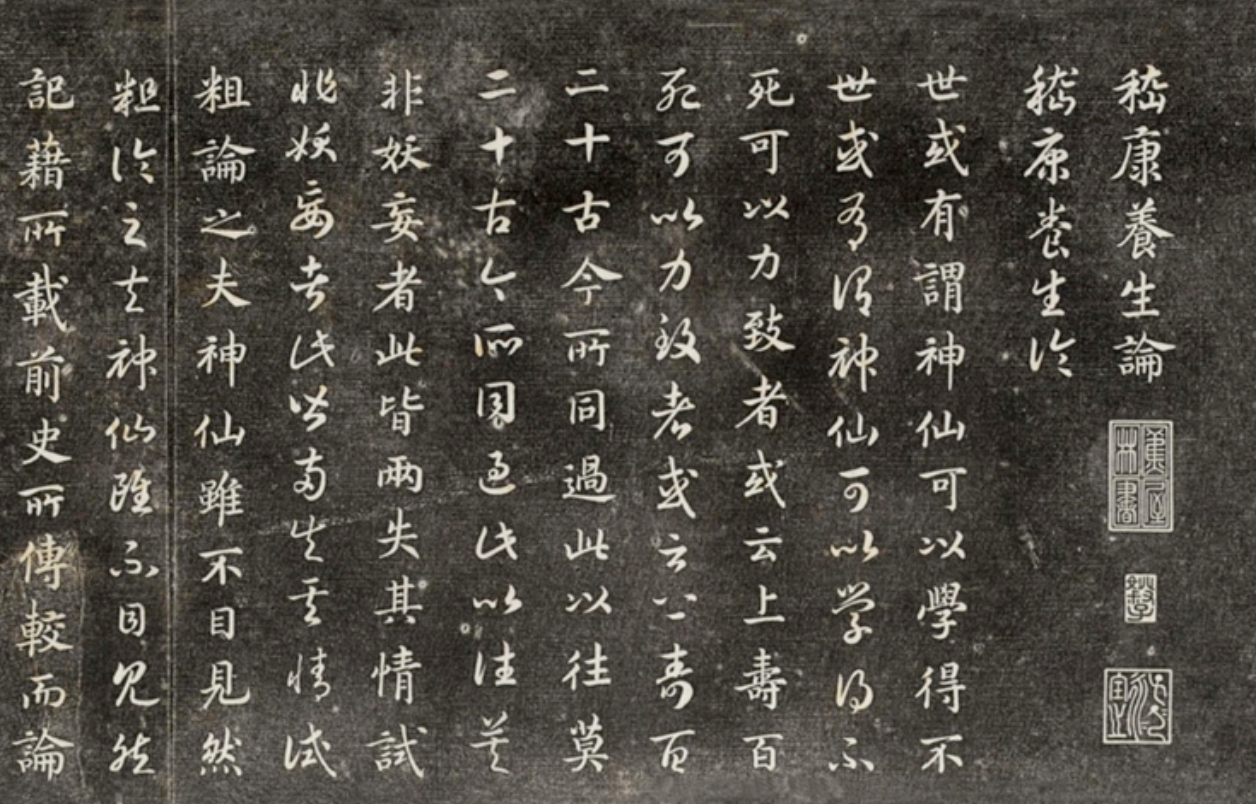 嵇康養生論
蕉林書屋
嵇康養生論
世或有謂神仙可以學得不
世或有謂神仙可以學得不
死可以力致者或云上壽百
死可以力致者或云上壽百
二十古今所同過此以往莫
二十古今所同過此以往莫
非妖妄者此皆兩失其情試
非妖妄者此皆兩失其情試
粗論之夫神仙雖不目見然
粗論之夫神仙雖不目見然
記藉所載前史所傳較而論